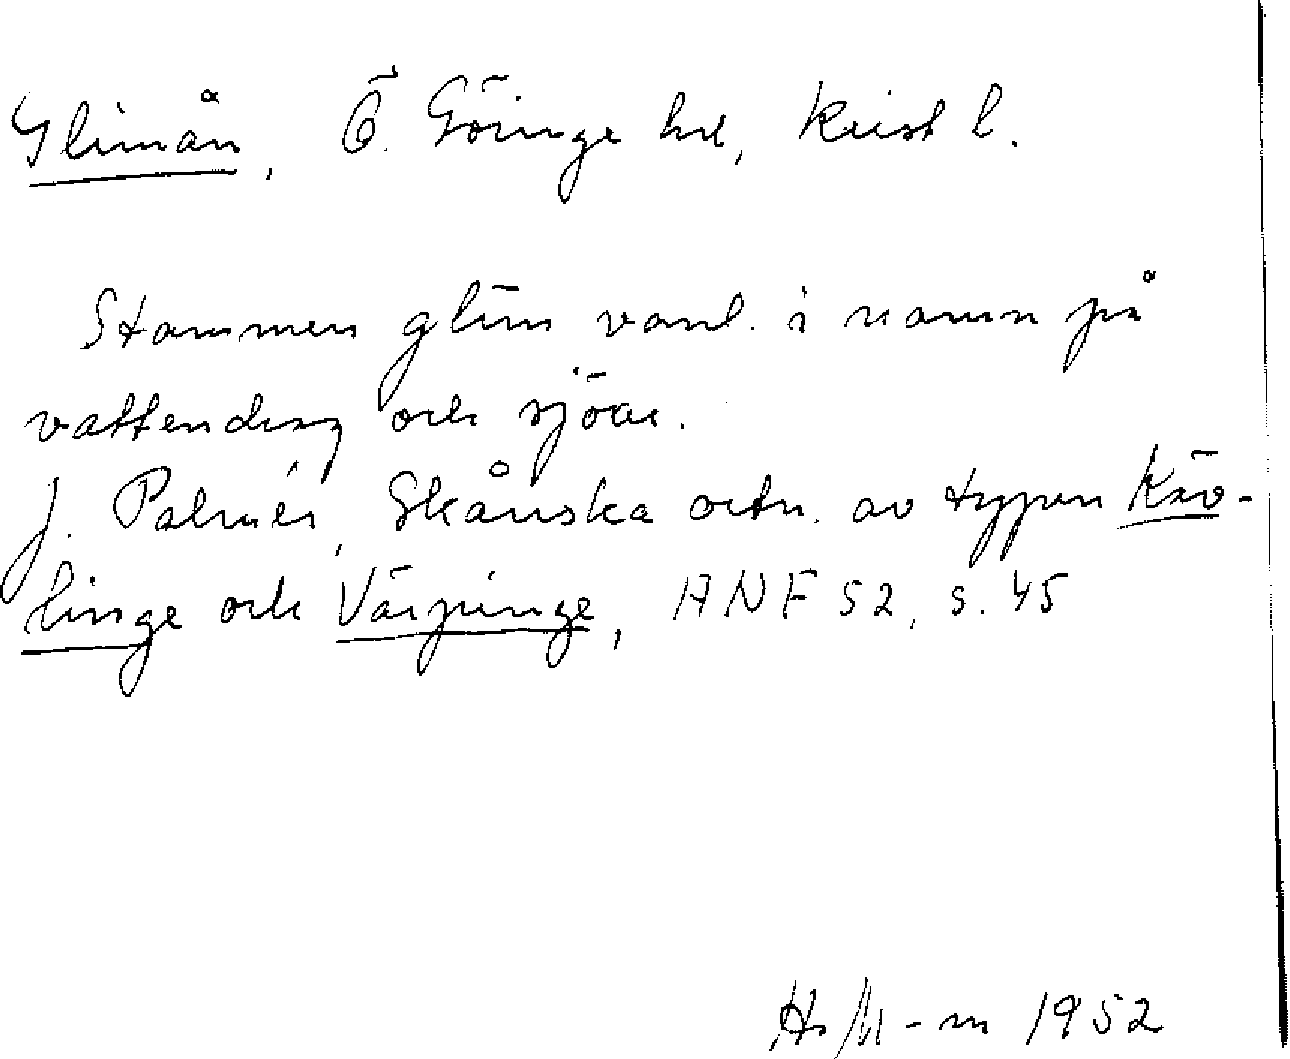 Glimån, Ö. Göinge hd, Krist l.
Stammen glim vanl. i namn på
vattendrag och sjöar.
J. Palmér, Skånska ortn. av typen Käv-
linge och Värpinge, ANF 52, s. 45
H. M-m 1952